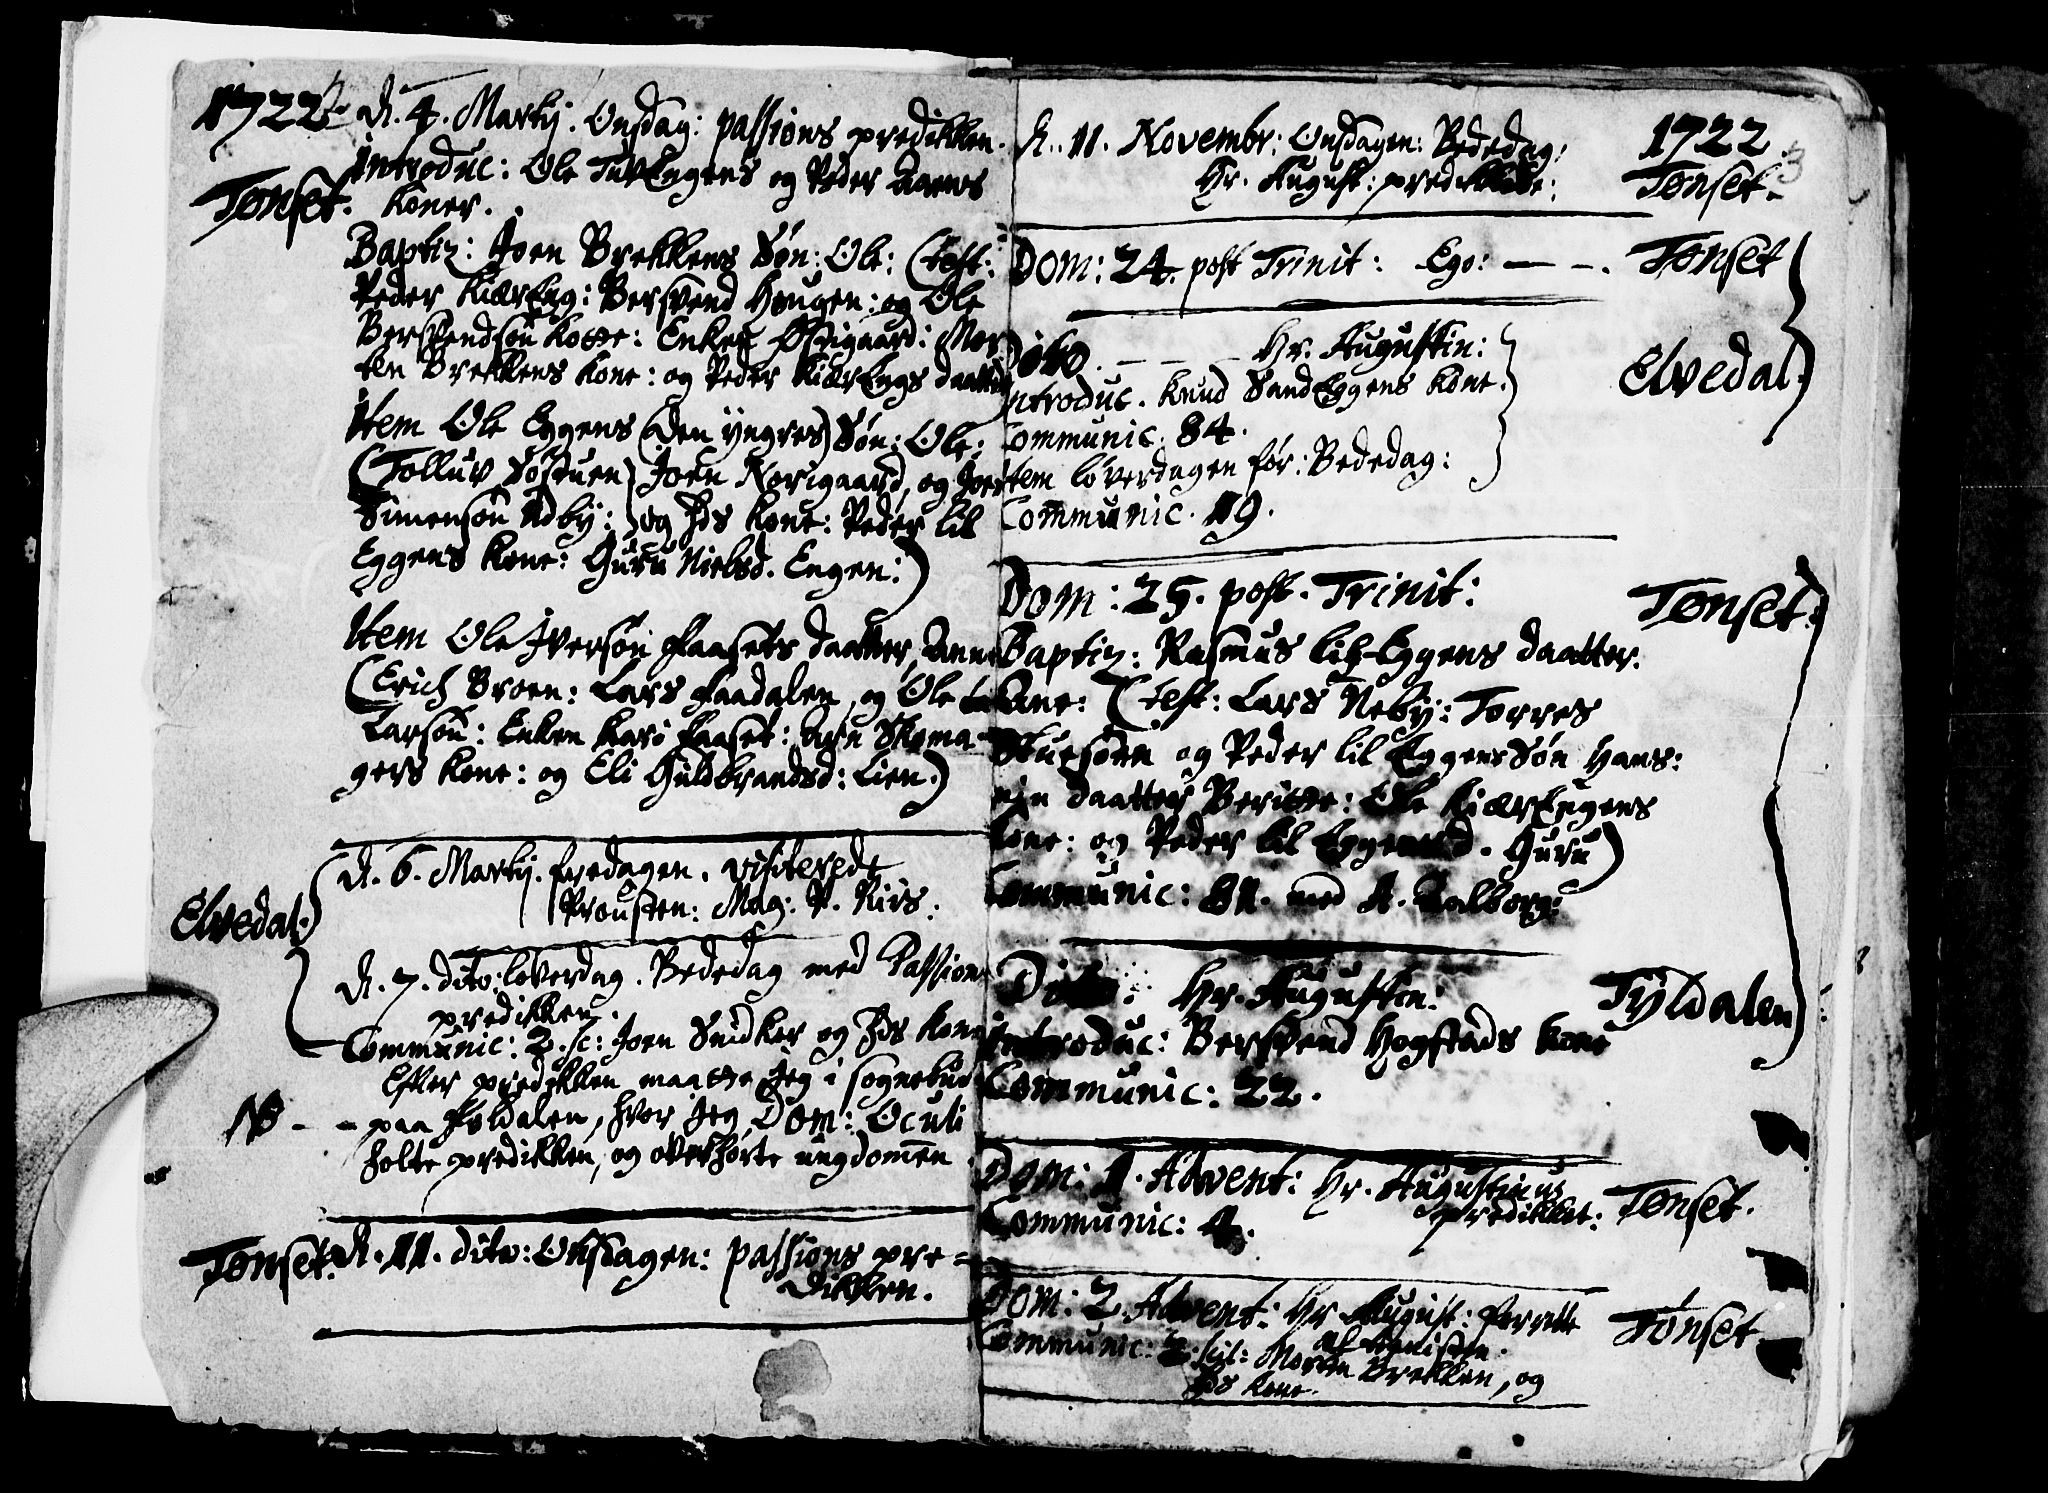 1722. d. 4. Martij. Onsdag: passions predikken.
Introduc: Ole TuvEngens og Peder Aaens
Tønset. koner.
Baptiz: Joen Brekkens Søn: Ole: (test:
Peder KiærEng: Bersvend Hougen: og Ole
Bersvendsøn Kotte: Enken Østigaard: Mor
ten Brekkens kone: og Peder KiærEngs daatter
Item Ole Eggens (den yngres) Søn: Ole:
(Tolluv Joen Norigaard, og Joen
Simensøn Udby: og hs kone: Peder lil
Eggens kone: Guru Nielsd. Engen:)
Item Ole Iversøn Faasets daatter, Anne
(Erich Broen: Lars Faadalen, og Ole
Larsøn: Enken Kari Faaset: Arn Skoma-
gers kone: og Eli Guldbrandsd: Lien.)
d. 6. Martij. fredagen. visiterede
Prousten: Mag: P. Nirs:
Elvedal.
d. 7. dito: løverdag. Bededag med Passions
predikken.
Communic: 2. sc: Joen Snidker og hs kone
Efter predikken maatte jeg i sognebud
NB - - paa Foldalen, hvor jeg, Dom: Oculi
holte predikken, og overhørte ungdomen
Tønset: d. 11. dito: Onsdagen: passions pre=
dikken.
d. 11. Novembr: Onsdagen: Bededag: 1722
Hr. August: predikkede: Tønset. 3
Dom: 24. post Trinit: Ego: — - . Tønset
Dito. — — — Hr. Augustin:
Elvedal.
Introduc. Knud SandEggens kone.
Communic. 84.
Item løverdagen før: Bededag:
Communic. 19.
Dom: 25. post. Trinit: Tønset.
Baptiz: Rasmus lil-Eggens daatter.
Ane: (test: Lars Neby: Torres
Stuesøen og Peder lil Eggens Søn Hans:
min daatter Beritte: Ole KiærEngens
kone: og Peder lil Eggens d. Guru)
Communic: 81. med A. Aalborg:
Dito: Hr. Augustin: Tyldalen
Introduc: Bersvend Hogstads kone
Communic: 22.
Dom: 1. Advent: Hr. Augustinus
predikket: Tønset.
Communic: 4.
Dom: 2. Advent: Hr August: forrette
Tønset
Communic: 2: scil: Morten Brekken, og
hs kone.